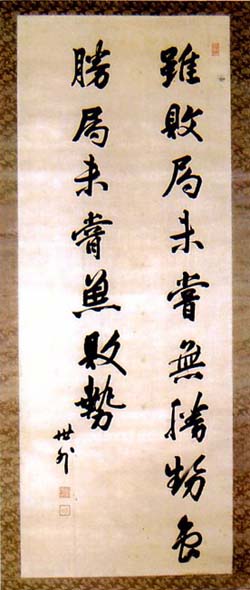 雖敗局未嘗無勝勢雖
勝局未嘗無敗勢
世外